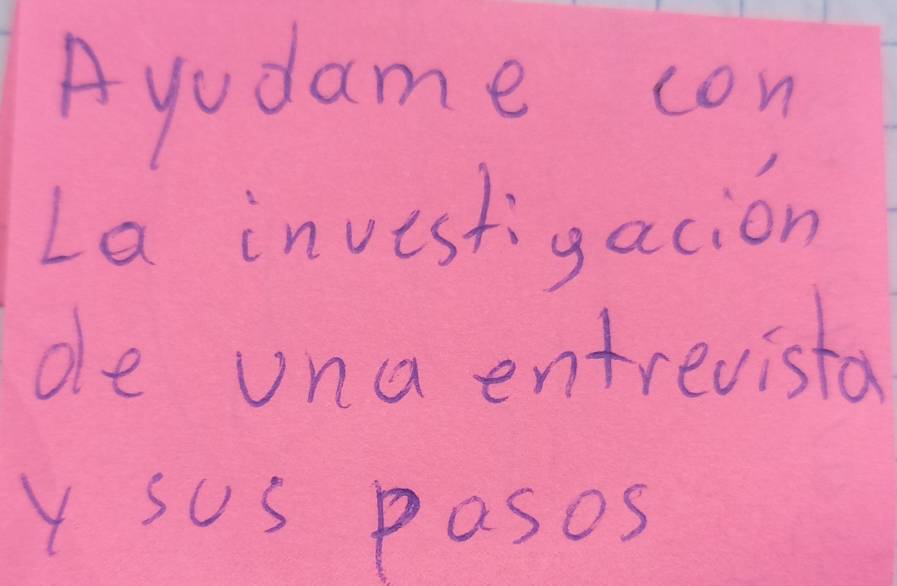 Ayudame con
La investigación
de una entrevista
y sus pasos